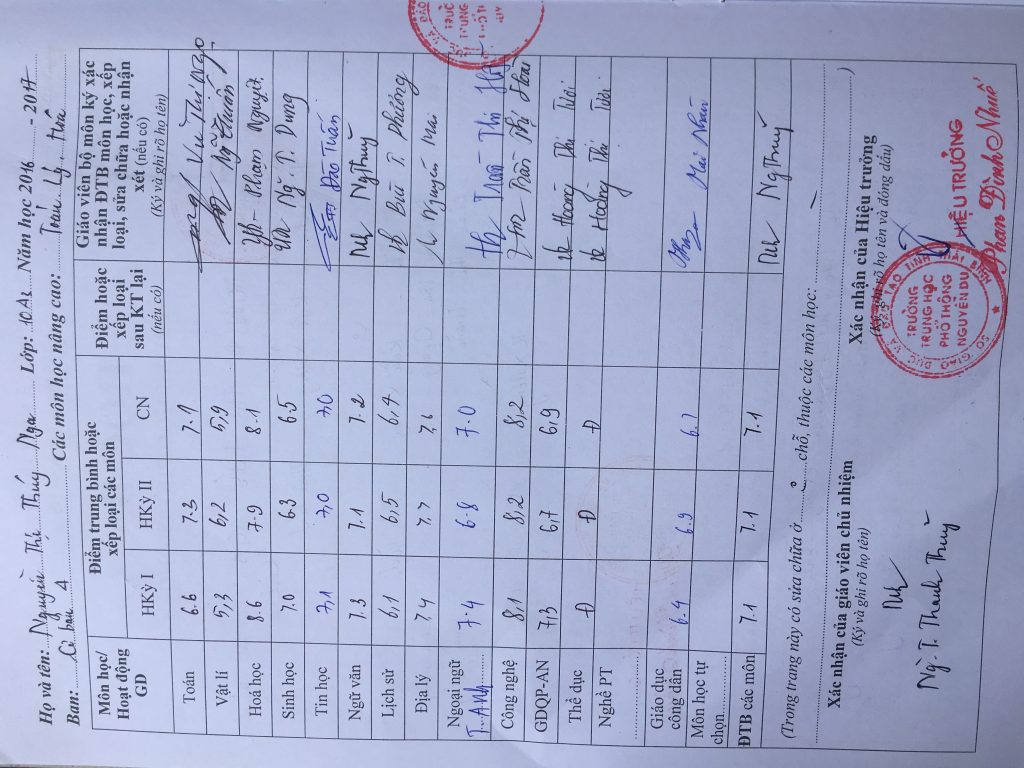 Họ và tên: Nguyễn Thị Thúy Nga Lớp: 10A1 Năm học 2016 - 2017
Ban: Cơ bản A Các môn học nâng cao: Toán, Lý, Hóa
Môn học/ Hoạt động GD
Điểm trung bình hoặc xếp loại các môn
HKỳ I HKỳ II CN
Điểm hoặc xếp loại sau KT lại (nếu có)
Giáo viên bộ môn ký xác nhận ĐTB môn học, xếp loại, sửa chữa hoặc nhận xét (nếu có)
(Ký và ghi rõ họ tên)
Toán 6.6 7.3 7.1 Vũ Thị
Vật lí 5,3 6,2 5,9
Hoá học 8.6 7.9 8.1 Phạm Nguyệt
Sinh học 7.0 6.3 6.5 Ng. T. Dung
Tin học 7,1 7,0 7,0 Đào Tuấn
Ngữ văn 7.3 7.1 7.2 Ng Thuỳ
Lịch sử 6,1 6,5 6,4 Bùi T. Phương
Địa lý 7,4 7,7 7,6 Nguyễn Mai
Ngoại ngữ T.Anh 7.4 6.8 7.0 Trần Thị
Công nghệ 8,1 8,2 8,2 Trần Thị
GDQP-AN 7,3 6,7 6,9 Hoàng Thị
Thể dục Đ Đ Đ Hoàng Thị
Nghề PT
Giáo dục công dân 6.4 6.9 6.7 Mai Nhàn
Môn học tự chọn
ĐTB các môn 7.1 7.1 7.1 Ng Thuỳ
(Trong trang này có sửa chữa ở chỗ, thuộc các môn học:
Xác nhận của giáo viên chủ nhiệm
(Ký và ghi rõ họ tên)
Ng. T. Thanh Thuỳ
Xác nhận của Hiệu trưởng
(Ký, ghi rõ họ tên và đóng dấu)
SỞ GIÁO DỤC VÀ ĐÀO TẠO TỈNH THÁI BÌNH
TRƯỜNG
TRUNG HỌC
PHỔ THÔNG
NGUYỄN DU
HIỆU TRƯỞNG
Phan Đình Nhuế